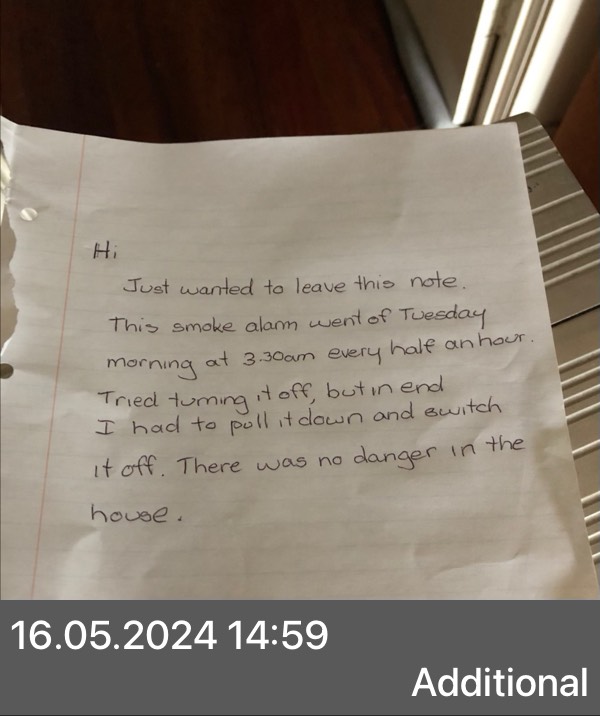 Hi
Just wanted to leave this note.
This smoke alarm went of Tuesday
morning at 3.30am every half an hour.
Tried turning it off, but in end
I had to pull it down and switch
it off. There was no danger in the
house.
16.05.2024 14:59
Additional